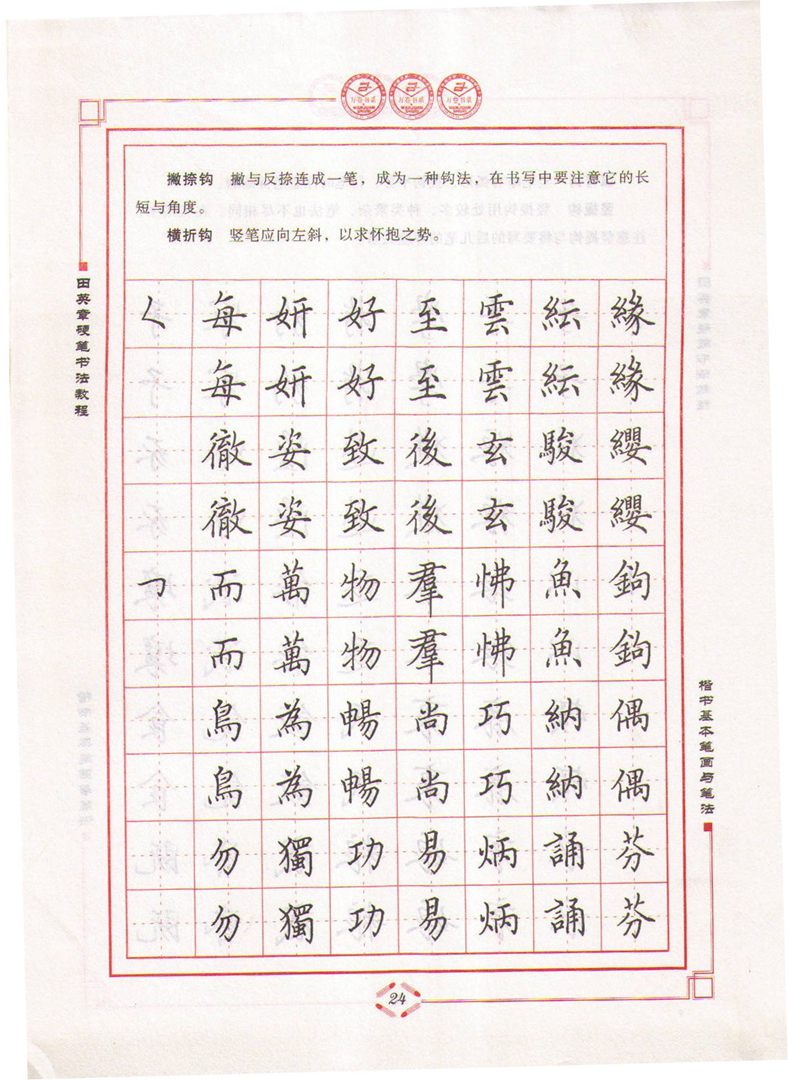 万卷书系
万卷书系
万卷书系
撇捺钩 撇与反捺连成一笔，成为一种钩法，在书写中要注意它的长
短与角度。
横折钩 竖笔应向左斜，以求怀抱之势。
田英章硬笔书法教程
𡿨 每 妍 好 至 雲 紜 緣
每 妍 好 至 雲 紜 緣
徹 姿 致 後 玄 駿 纓
徹 姿 致 後 玄 駿 纓
㇆ 而 萬 物 羣 怫 魚 鉤
而 萬 物 羣 怫 魚 鉤
鳥 為 暢 尚 巧 納 偶
鳥 為 暢 尚 巧 納 偶
勿 獨 功 易 炳 誦 芬
勿 獨 功 易 炳 誦 芬
楷书基本笔画与笔法
24